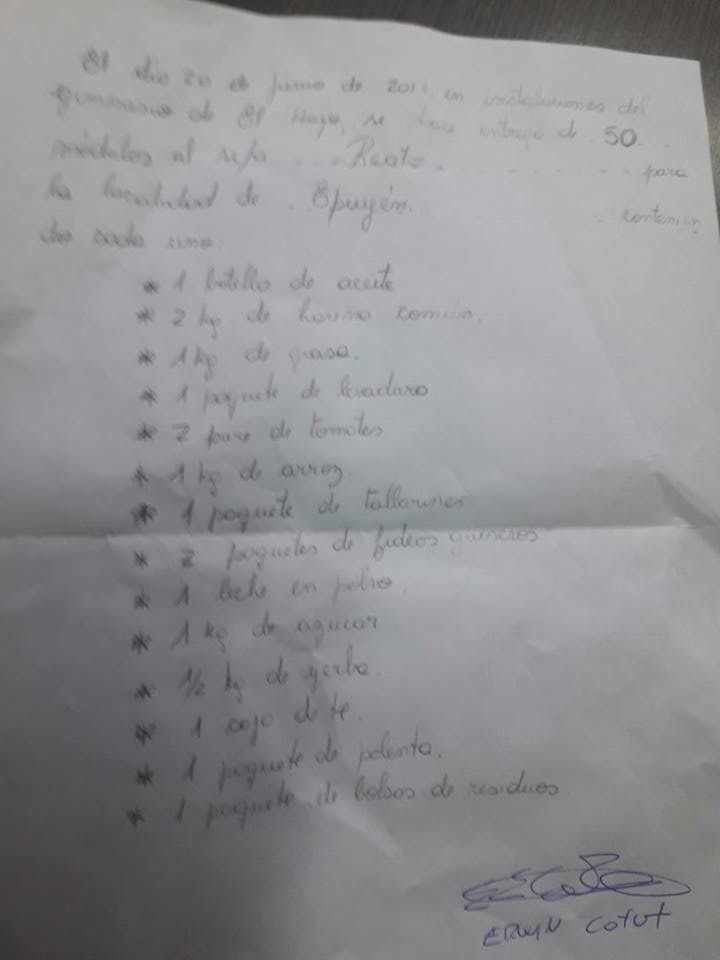 El día 20 de junio de 201 en instalaciones del
gimnasio de El Hoyo, se hace entrega de 50
módulos al sr/a ... Reato ... para
la localidad de . Epuyén. . contenien
do cada uno:
* 1 botella de aceite
* 2 kg de harina común.
* 1 kg de grasa.
* 1 paquete de levadura
* 2 puré de tomates
* 1 kg de arroz.
* 1 paquete de tallarines
* 2 paquetes de fideos guiseros
* 1 leche en polvo.
* 1 kg de azucar
* 1/2 kg de yerba.
* 1 caja de te.
* 1 paquete de polenta.
* 1 paquete de bolsas de residuos.